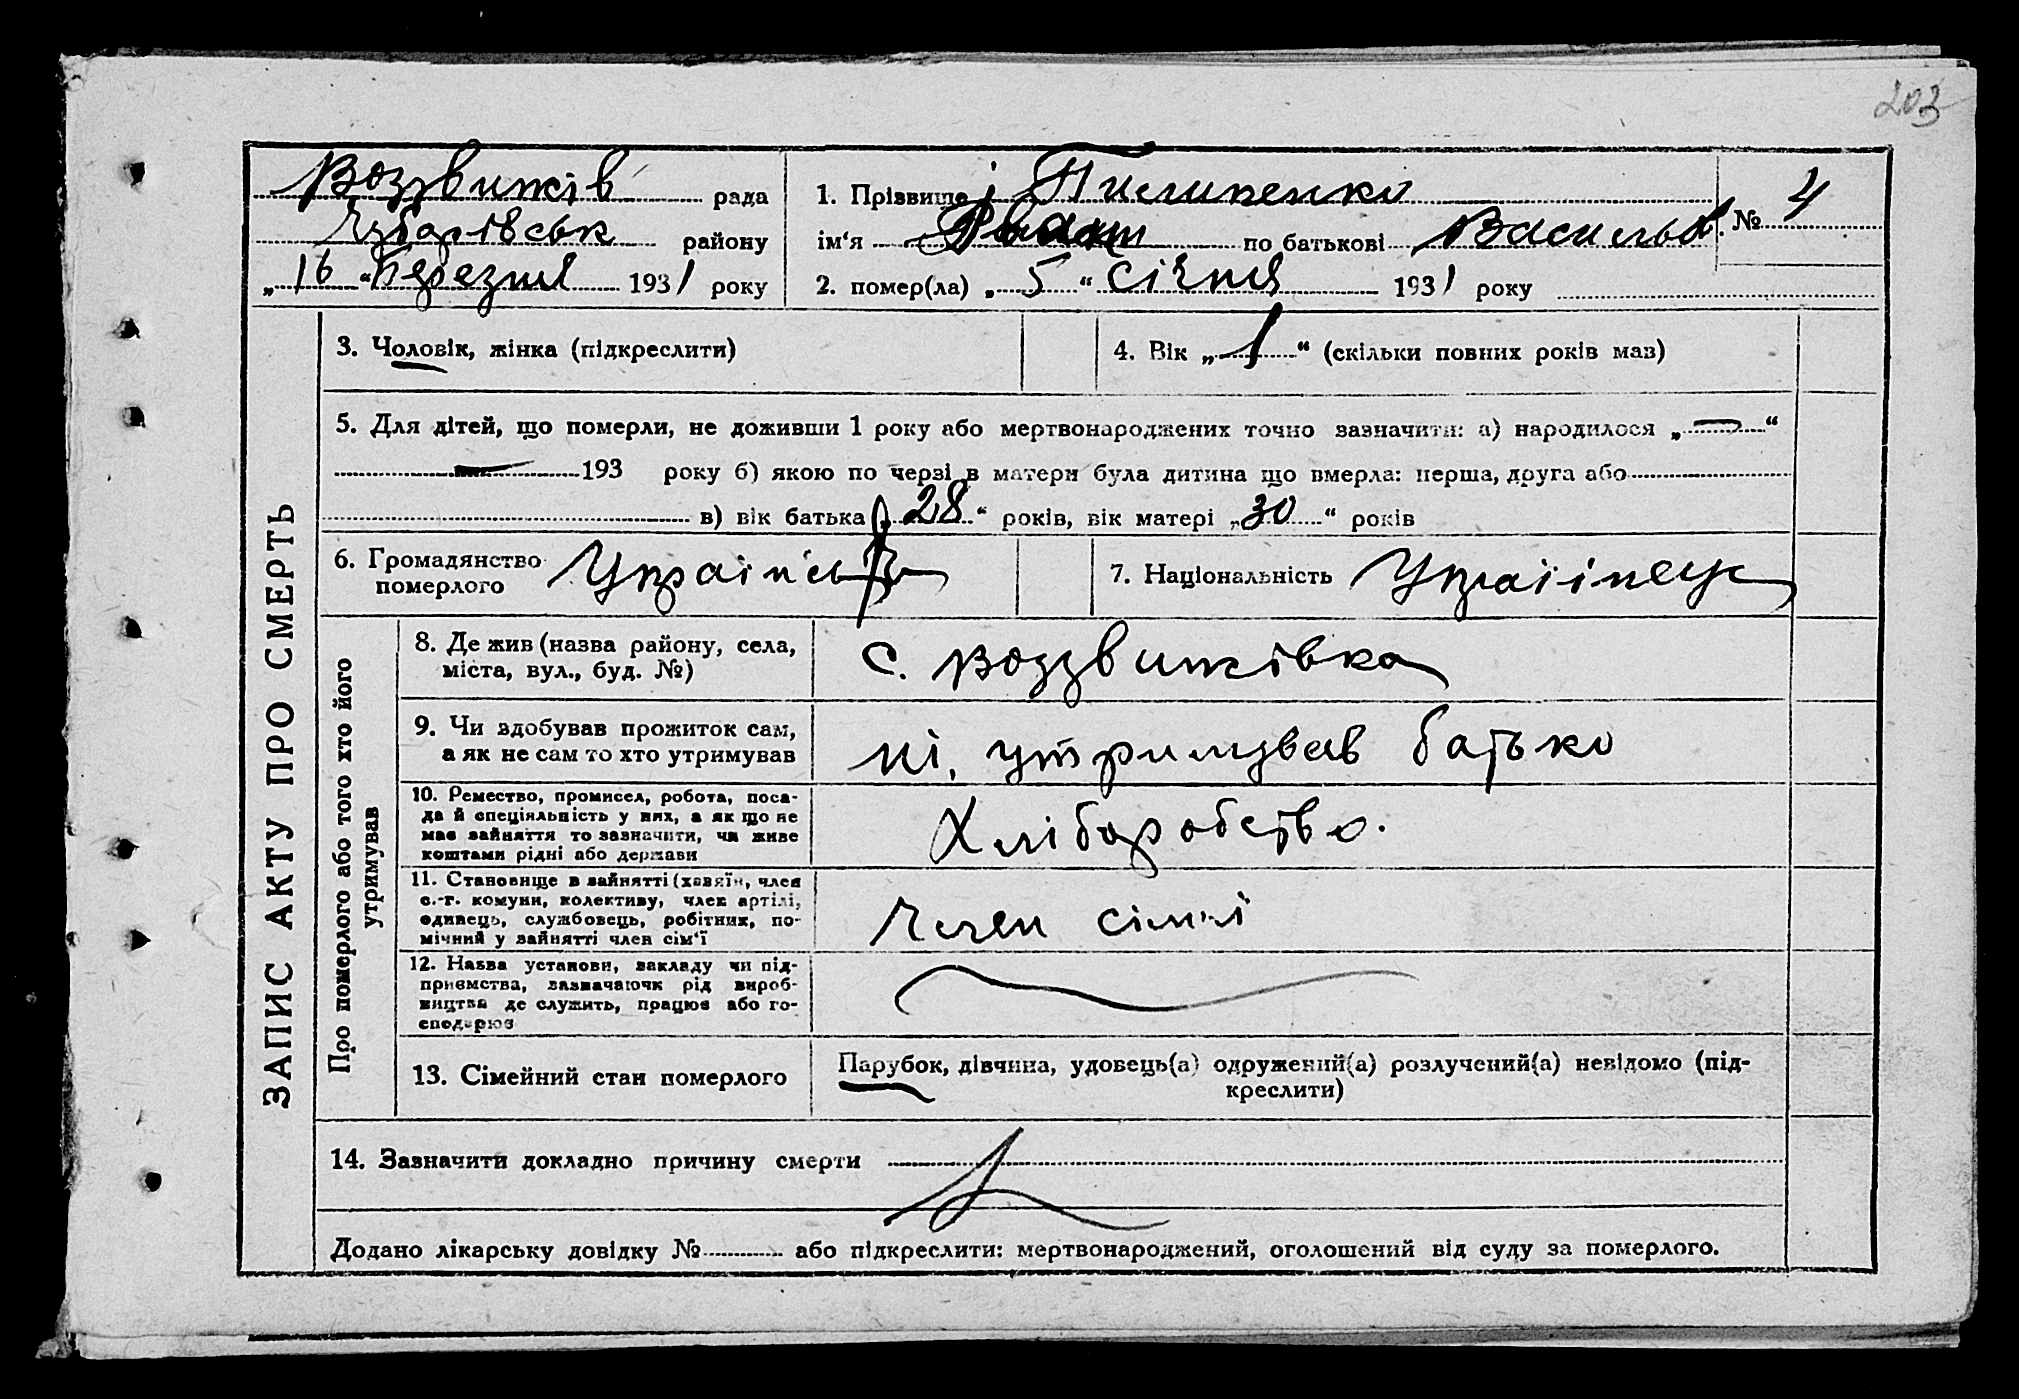 203
Воздвижів рада
району
„16“ Березня 1931 року
1. Прізвище Пилипенко
ім'я по батькові Васильов. № 4
2. помер(ла) „5“ Січня 1931 року
ЗАПИС АКТУ ПРО СМЕРТЬ
3. Чоловік, жінка (підкреслити)
4. Вік „1“ (скільки повних років мав)
5. Для дітей, що померли, не доживши 1 року або мертвонароджених точно зазначити: а) народилося „—“
— 193 року б) якою по черзі в матери була дитина що вмерла: перша, друга або
в) вік батька „28“ років, вік матері „30“ років
6. Громадянство
померлого
7. Національність Українець
Про померлого або того хто його
утримував
8. Де жив (назва району, села,
міста, вул., буд. №)
с. Воздвижівка
9. Чи здобував прожиток сам,
а як не сам то хто утримував
ні, утримував батько
10. Ремество, промисел, робота, поса-
да й спеціяльність у них, а як що не
має зайняття то зазначити, чи живе
коштами рідні або держави
Хліборобство.
11. Становище в зайнятті (хазяїн, член
с.-г. комуни, колективу, член артілі,
одинець, службовець, робітник, по-
мічний у зайнятті член сім'ї
Член сім'ї
12. Назва установи, закладу чи під-
приємства, зазначаючи рід вироб-
ництва де служить, працює або го-
сподарює
13. Сімейний стан померлого
Парубок, дівчина, удовець(а) одружений(а) розлучений(а) невідомо (під-
креслити)
14. Зазначити докладно причину смерти
Додано лікарську довідку № або підкреслити: мертвонароджений, оголошений від суду за померлого.